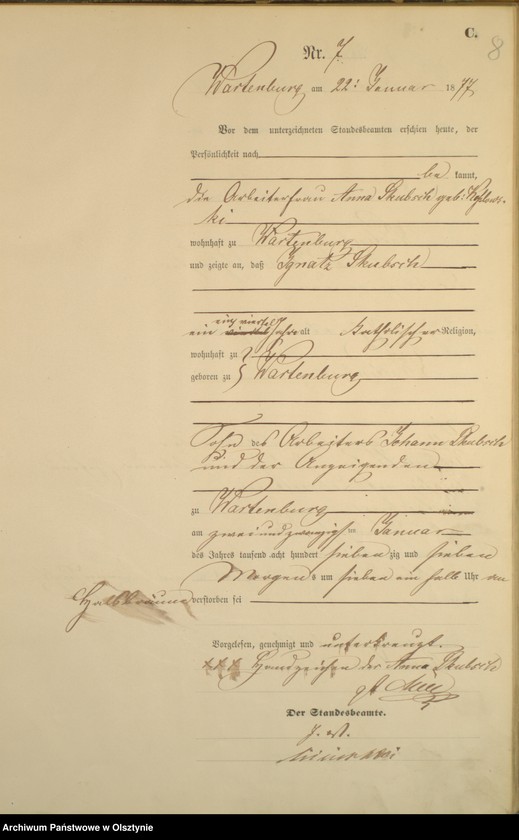 C.
8
Nr. 7
Wartenburg am 22. Januar 1877
Vor dem unterzeichneten Standesbeamten erschien heute, der
Persönlichkeit nach
be kannt,
die Arbeiterfrau Anna Skubsch geb.
ki
wohnhaft zu Wartenburg
und zeigte an, daß Ignatz Skubsch
ein viertel
ein Jahre alt katholischer Religion,
wohnhaft zu
geboren zu Wartenburg
Sohn des Arbeiters Johann Skubsch
und der Anzeigenden
zu Wartenburg
am zweiundzwanzigsten Januar
des Jahres tausend acht hundert siebenzig und sieben
Morgens um sieben ein halb Uhr an
Halsbräune verstorben sei
Vorgelesen, genehmigt und unterkreuzt.
xxx Handzeichen der Anna Skubsch
Der Standesbeamte.
J. V.
Archiwum Państwowe w Olsztynie